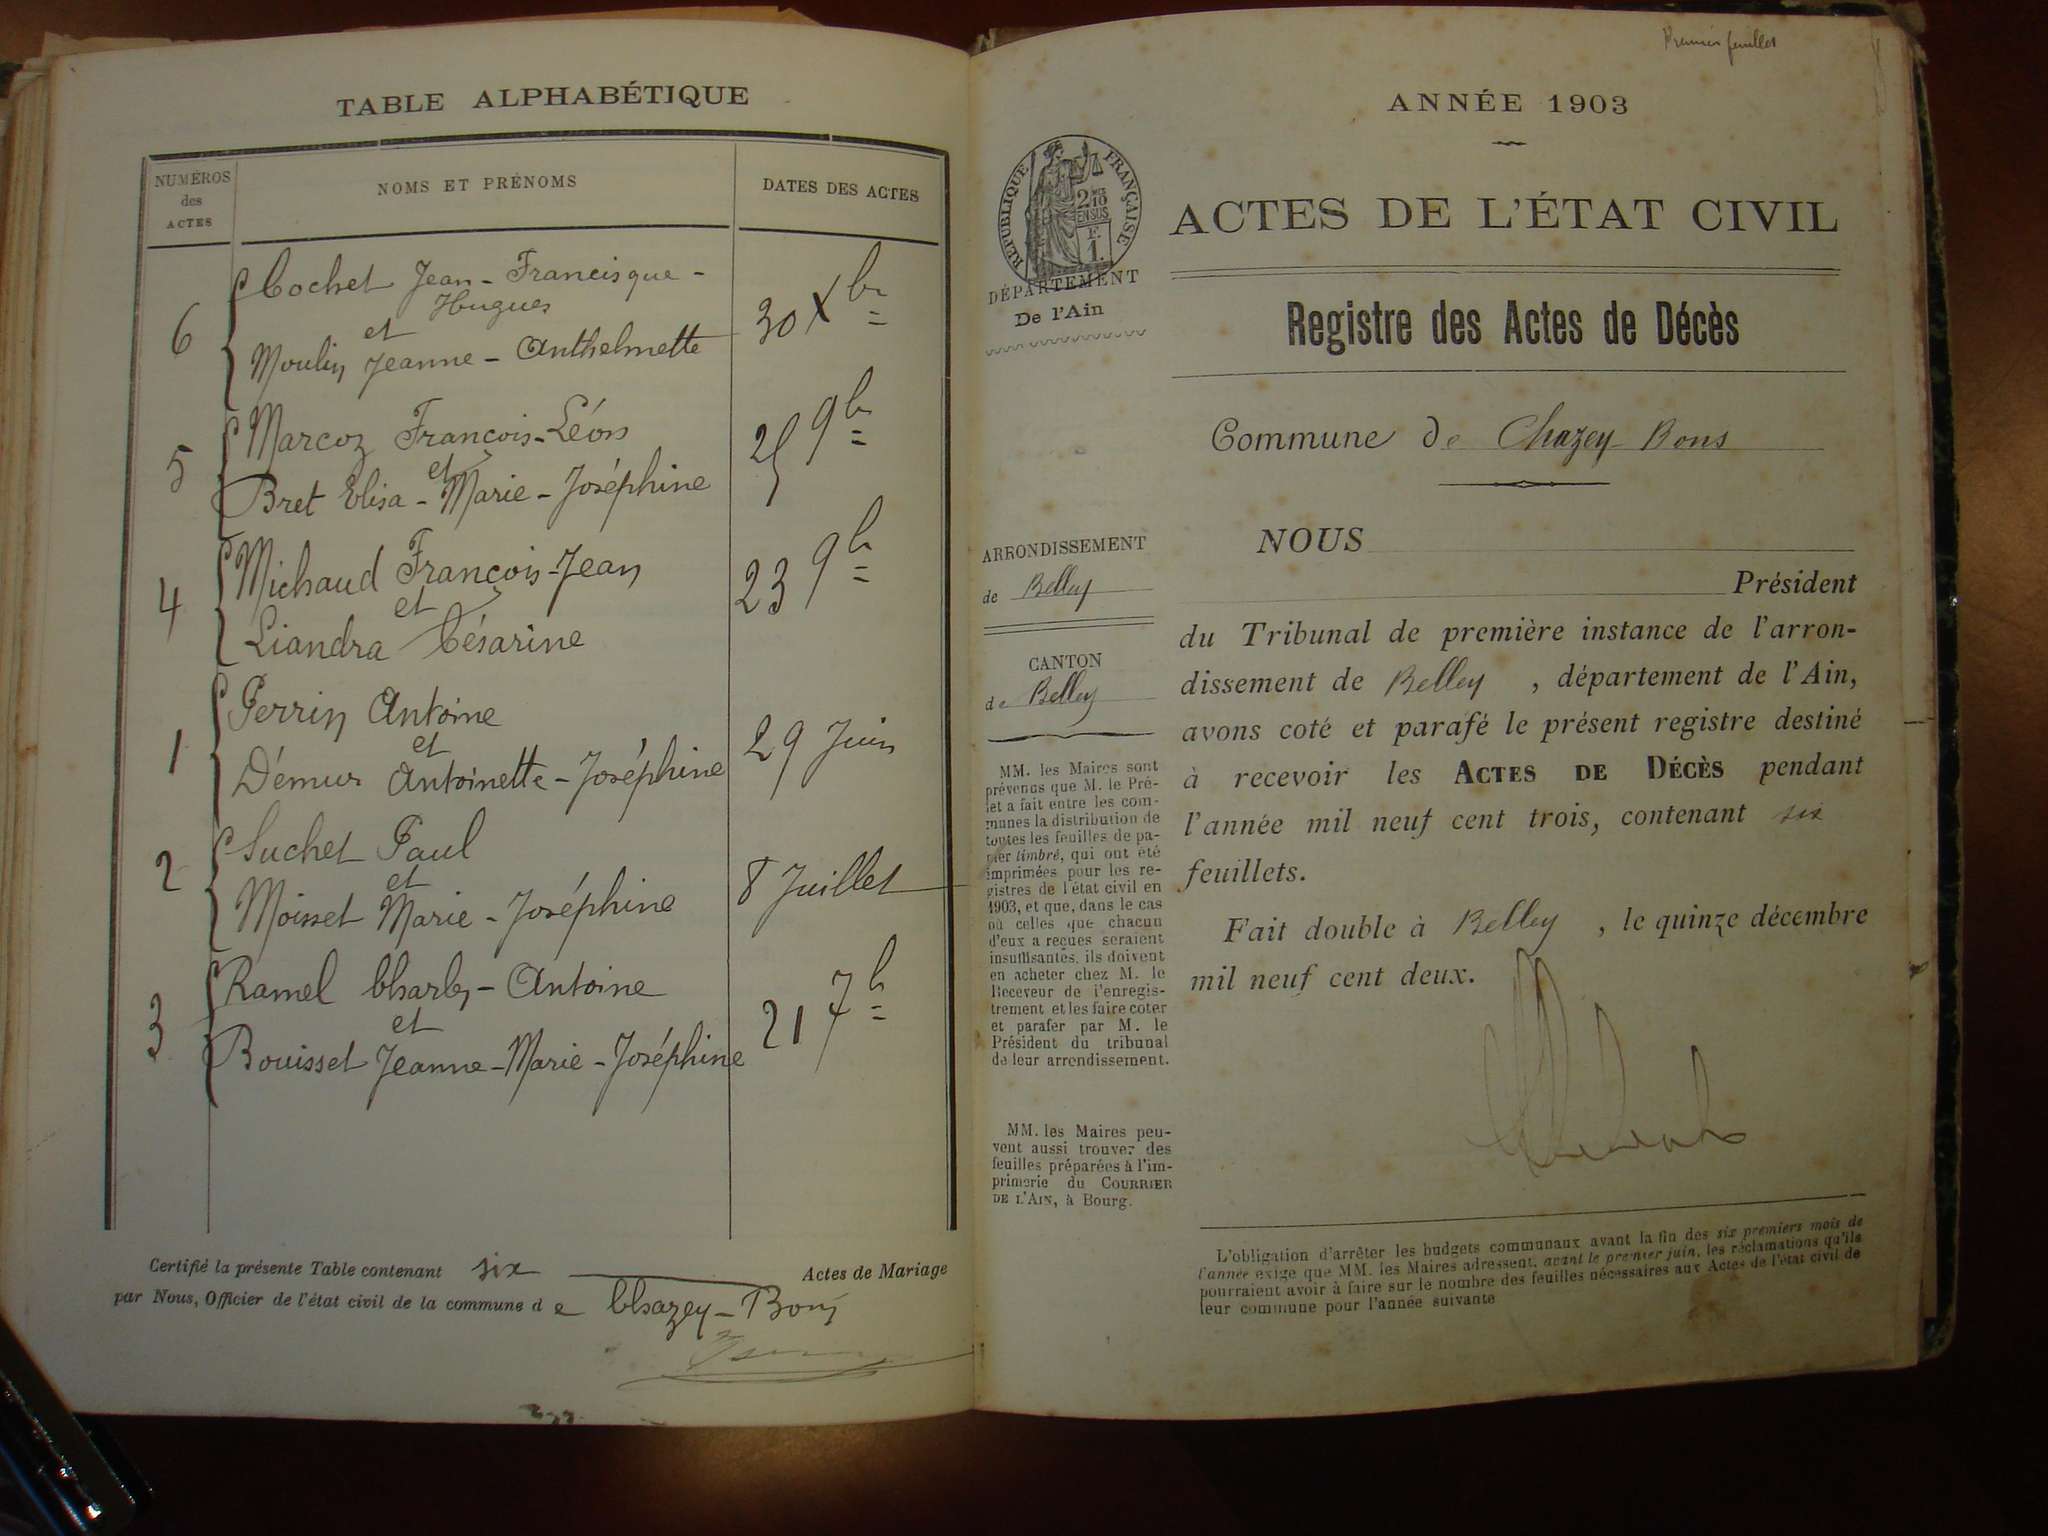 TABLE ALPHABÉTIQUE
NUMÉROS
des
ACTES
NOMS ET PRÉNOMS
DATES DES ACTES
Cochet Jean-Francisque-
Hugues
6 et 30 Xbr
Moulin Jeanne-Anthelmette
Marcoz François-Léon
5 et 25 9br
Bret Elisa-Marie-Joséphine
Michaud François-Jean
4 et 23 9br
Liandra Césarine
Perrin Antoine
1 et 29 Juin
Démur Antoinette-Joséphine
Suchet Paul
2 et 8 Juillet
Moisset Marie-Joséphine
Ramel Charles-Antoine
3 et 21 7b
Bouisset Jeanne-Marie-Joséphine
Certifié la présente Table contenant six Actes de Mariage
par Nous, Officier de l'état civil de la commune de Chazey-Bons
Premier feuillet
ANNÉE 1903
RÉPUBLIQUE FRANÇAISE
2/10mes
EN SUS
F.
1.
ACTES DE L'ÉTAT CIVIL
DÉPARTEMENT
De l'Ain
Registre des Actes de Décès
Commune de Chazey Bons
ARRONDISSEMENT
de Belley
CANTON
de Belley
MM. les Maires sont
prévenus que M. le Pré-
fet a fait entre les com-
munes la distribution de
toutes les feuilles de pa-
pier timbré, qui ont été
imprimées pour les re-
gistres de l'état civil en
1903, et que, dans le cas
où celles que chacun
d'eux a reçues seraient
insuffisantes, ils doivent
en acheter chez M. le
Receveur de l'enregis-
trement et les faire coter
et parafer par M. le
Président du tribunal
de leur arrondissement.
MM. les Maires peu-
vent aussi trouver des
feuilles préparées à l'im-
primerie du COURRIER
DE L'AIN, à Bourg.
NOUS
Président
du Tribunal de première instance de l'arron-
dissement de Belley, département de l'Ain,
avons coté et parafé le présent registre destiné
à recevoir les ACTES DE DÉCÈS pendant
l'année mil neuf cent trois, contenant six
feuillets.
Fait double à Belley, le quinze décembre
mil neuf cent deux.
L'obligation d'arrêter les budgets communaux avant la fin des six premiers mois de
l'année exige que MM. les Maires adressent, avant le premier juin, les réclamations qu'ils
pourraient avoir à faire sur le nombre des feuilles nécessaires aux Actes de l'état civil de
leur commune pour l'année suivante